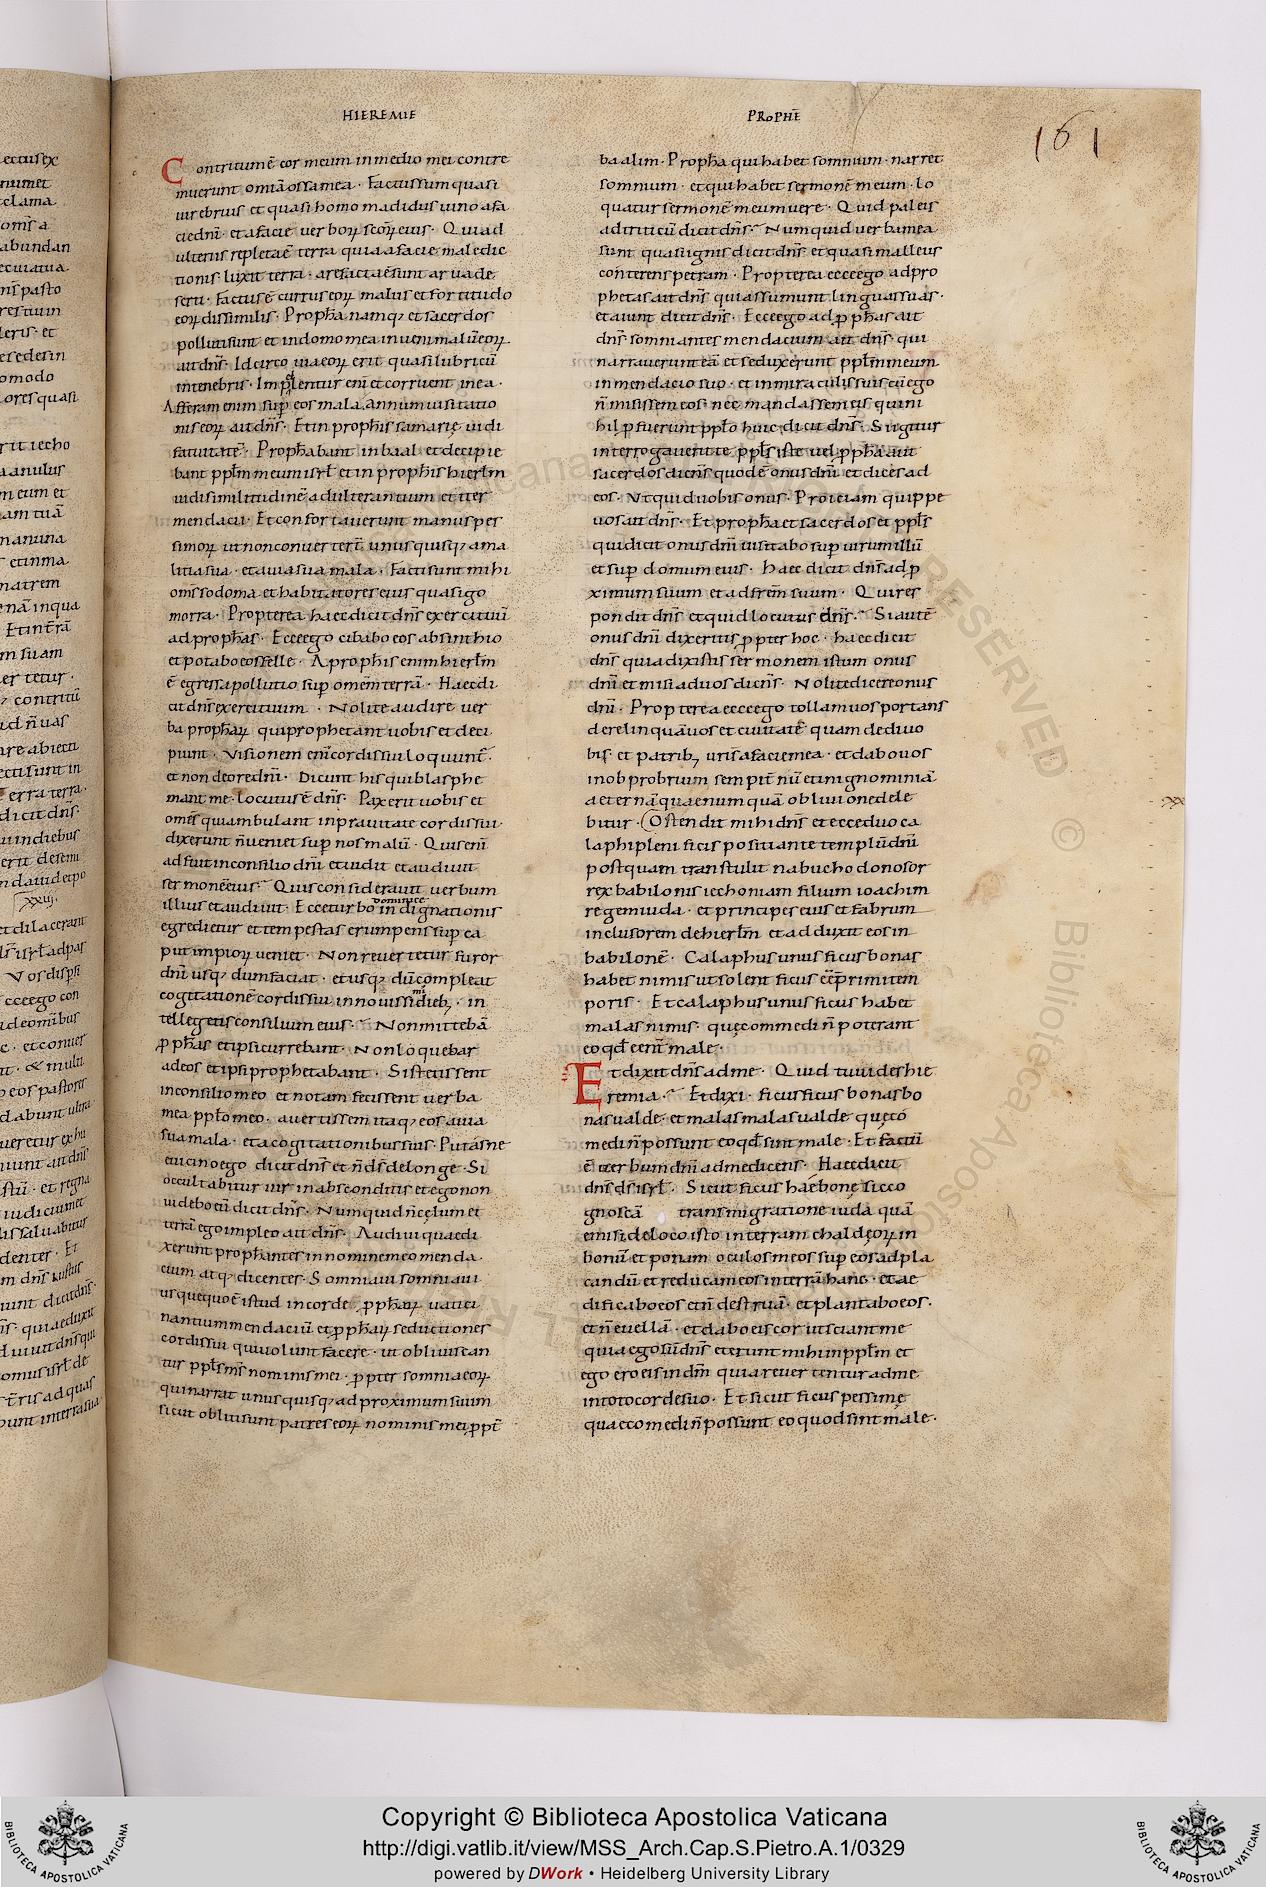 HIEREMIE
PROPHE̅
161
Contritum e̅ cor meum in medio mei contre
muerunt omia̅ ossa mea · Factus sum quasi
uir ebrius et quasi homo madidus uino a fa
cie dn̅i · et a facie uerborꝝ sc̅orꝝ eius · Quia ad
ulteris repleta e̅ terra quia a facie maledic
tionis luxit terra · arefacta e̅ sunt arua de
serti · Factus e̅ cursus eorꝝ malus et fortitudo
eorꝝ dissimilis · Proph̅a namq; et sacerdos
polluti sunt et in domo mea inueni malu̅ eorꝝ
ait dn̅s · Idcirco uia eorꝝ erit quasi lubricu̅
in tenebris · Impellentur eni̅ et corruent in ea ·
Afferam enim sup̅ eos mala annum uisitatio
nis eorꝝ ait dn̅s · Et in proph̅is samarię uidi
fatuitate̅ · Proph̅abant in baal et decipie
bant ppl̅m meum isrl̅ et in proph̅is hierl̅m
uidi similitudine̅ adulterantium et iter
mendacii · Et confortauerunt manus pes
simorꝝ ut non conuerteret̅ unusquisq; a ma
litia sua · et a uia sua mala · Facti sunt mihi
om̅s sodoma et habitatores eius quasi go
morra · Propterea haec dicit dn̅s exercituu̅
ad proph̅as · Ecce ego cibabo eos absinthio
et potabo eos felle · A proph̅is enim hierl̅m
e̅ egressa pollutio sup̅ omem̅ terra̅ · Haec di
cit dn̅s exercituum · Nolite audire uer
ba proph̅arꝝ qui prophetant uobis et deci
piunt · Visionem eni̅ cordis sui loquunt̅ ·
et non de ore dn̅i · Dicunt his qui blasphe
mant me · locutus e̅ dn̅s · Pax erit uobis et
omi̅ qui ambulant in prauitate cordis sui ·
dixerunt n̅ ueniet sup̅ nos malu̅ · Quis eni̅
adfuit in consilio dn̅i et uidit et audiuit
sermone̅ eius · Quis considerauit uerbum
illius et audiuit · Ecce turbo dominice indignationis
egredietur et tempestas erumpens sup̅ ca
put impiorꝝ ueniet · Non reuertetur furor
dn̅i usq; dum faciat · et usq; du̅ compleat
cogitatione̅ cordis sui in nouissimi dieb; · in
tellegetis consilium eius · Non mitteba̅
p̱ph̅as et ipsi currebant · Non loquebar
ad eos et ipsi prophetabant · Si stetissent
in consilio meo et nota̅ fecissent uerba
mea ppl̅o meo · auertissem itaq; eos a uia
sua mala · et a cogitationibus suis · Putasne
e uicino ego dicit dn̅s et n̅ ds̅ de longe · Si
occultabitur uir in absconditis et ego non
uidebo eu̅ dicit dn̅s · Numquid n̅ cęlum et
terra̅ ego impleo ait dn̅s · Audiui quae di
xerunt prophantes in nomine meo menda
cium atq; dicentes · Somniaui somniaui ·
usquequo e̅ istud in corde p̱ph̅arꝝ uatici
nantium mendaciu̅ et p̱ph̅arꝝ seductiones
cordis sui qui uolunt facere · ut obliuiscan
tur ppl̅s m̅s nominis mei · p̱pter somnia eorꝝ
qui narrat unusquisq; ad proximum suum
sicut obliti sunt patres eorꝝ nominis mei p̱pt̅
baalim · Proph̅a qui habet somnium · narret
somnium · et qui habet sermone̅ meum · lo
quatur sermone̅ meum uere · Quid paleis
ad triticu̅ dicit dn̅s · Numquid uerba mea
sunt quasi ignis dicit dn̅s et quasi malleus
conterens petram · Propterea ecce ego ad pro
phetas ait dn̅s qui assumunt linguas suas ·
et aiunt dicit dn̅s · Ecce ego ad p̱ph̅as ait
dn̅s somniantes mendacium ait dn̅s · qui
narrauerunt ea̅ et seduxerunt ppl̅m meum
in mendacio suo · et in miraculis suis cu̅ ego
n̅ misissem eos · nec mandassem eis qui ni
hil p̱fuerunt ppl̅o huic dicit dn̅s · Si igitur
interrogauerit te ppl̅s iste uel p̱ph̅a aut
sacerdos dicens quod e̅ onus dn̅i et dices ad
eos · Ut quid uobis onus · Proiciam quippe
uos ait dn̅s · Et proph̅a et sacerdos et ppl̅s
qui dicit onus dn̅i uisitabo sup̅ uirum illu̅
et sup̅ domum eius · Haec dicit dn̅s ad p̱
ximum suum et ad frem̅ suum · Quid res
pondit dn̅s et quid locutus dn̅s · Si aute̅
onus dn̅i dixeritis p̱pter hoc · haec dicit
dn̅s quia dixistis sermonem istum onus
dn̅i et misi ad uos dicens · Nolite dicere onus
dn̅i · Propterea ecce ego tollam uos portans
derelinqua̅ uos et ciuitate̅ quam dedi uo
bis · et patrib; uris̅ a facie mea · et dabo uos
in obprobrium sempit̅nu̅ et in ignominia̅
aeterna̅ quae numqua̅ obliuione dele
bitur · Ostendit mihi dn̅s et ecce duo ca
laphi pleni ficis positi ante templu̅ dn̅i
postquam transtulit nabuchodonosor
rex babilonis iechoniam filium ioachim
regem iuda · et principes eius et fabrum
inclusorem de hierl̅m et adduxit eos in
babilone̅ · Calaphus unus ficus bonas
habet nimis ut solent ficus ee̅ primi tem
poris · Et calaphus unus ficus habet
malas nimis · quę commedi n̅ poterant
eo qd̅ eent̅ male ·
Et dixit dn̅s ad me · Quid tu uides hie
remia · Et dixi · ficus ficus bonas bo
nas ualde · et malas malas ualde quę co
medi n̅ possunt eo qd̅ sint male · Et factu̅
e̅ uerbum dn̅i ad me dicens · Haec dicit
dn̅s ds̅ isrl̅ · Sicut ficus hae bonę sic co
gnosca̅ transmigratione iuda qua̅
emisi de loco isto in terram chaldęorꝝ in
bonu̅ et ponam oculos meos sup̅ eos ad pla
candu̅ et reducam eos in terra̅ hanc · et ae
dificabo eos et n̅ destrua̅ · et plantabo eos ·
et n̅ euella̅ · et dabo eis cor ut sciant me
quia ego su̅ dn̅s et erunt mihi in ppl̅m et
ego ero eis in dm̅ quia reuertentur ad me
in toto corde suo · Et sicut ficus pessimę
quae comedi n̅ possunt eo quod sint male ·
Copyright © Biblioteca Apostolica Vaticana
http://digi.vatlib.it/view/MSS_Arch.Cap.S.Pietro.A.1/0329
powered by DWork • Heidelberg University Library